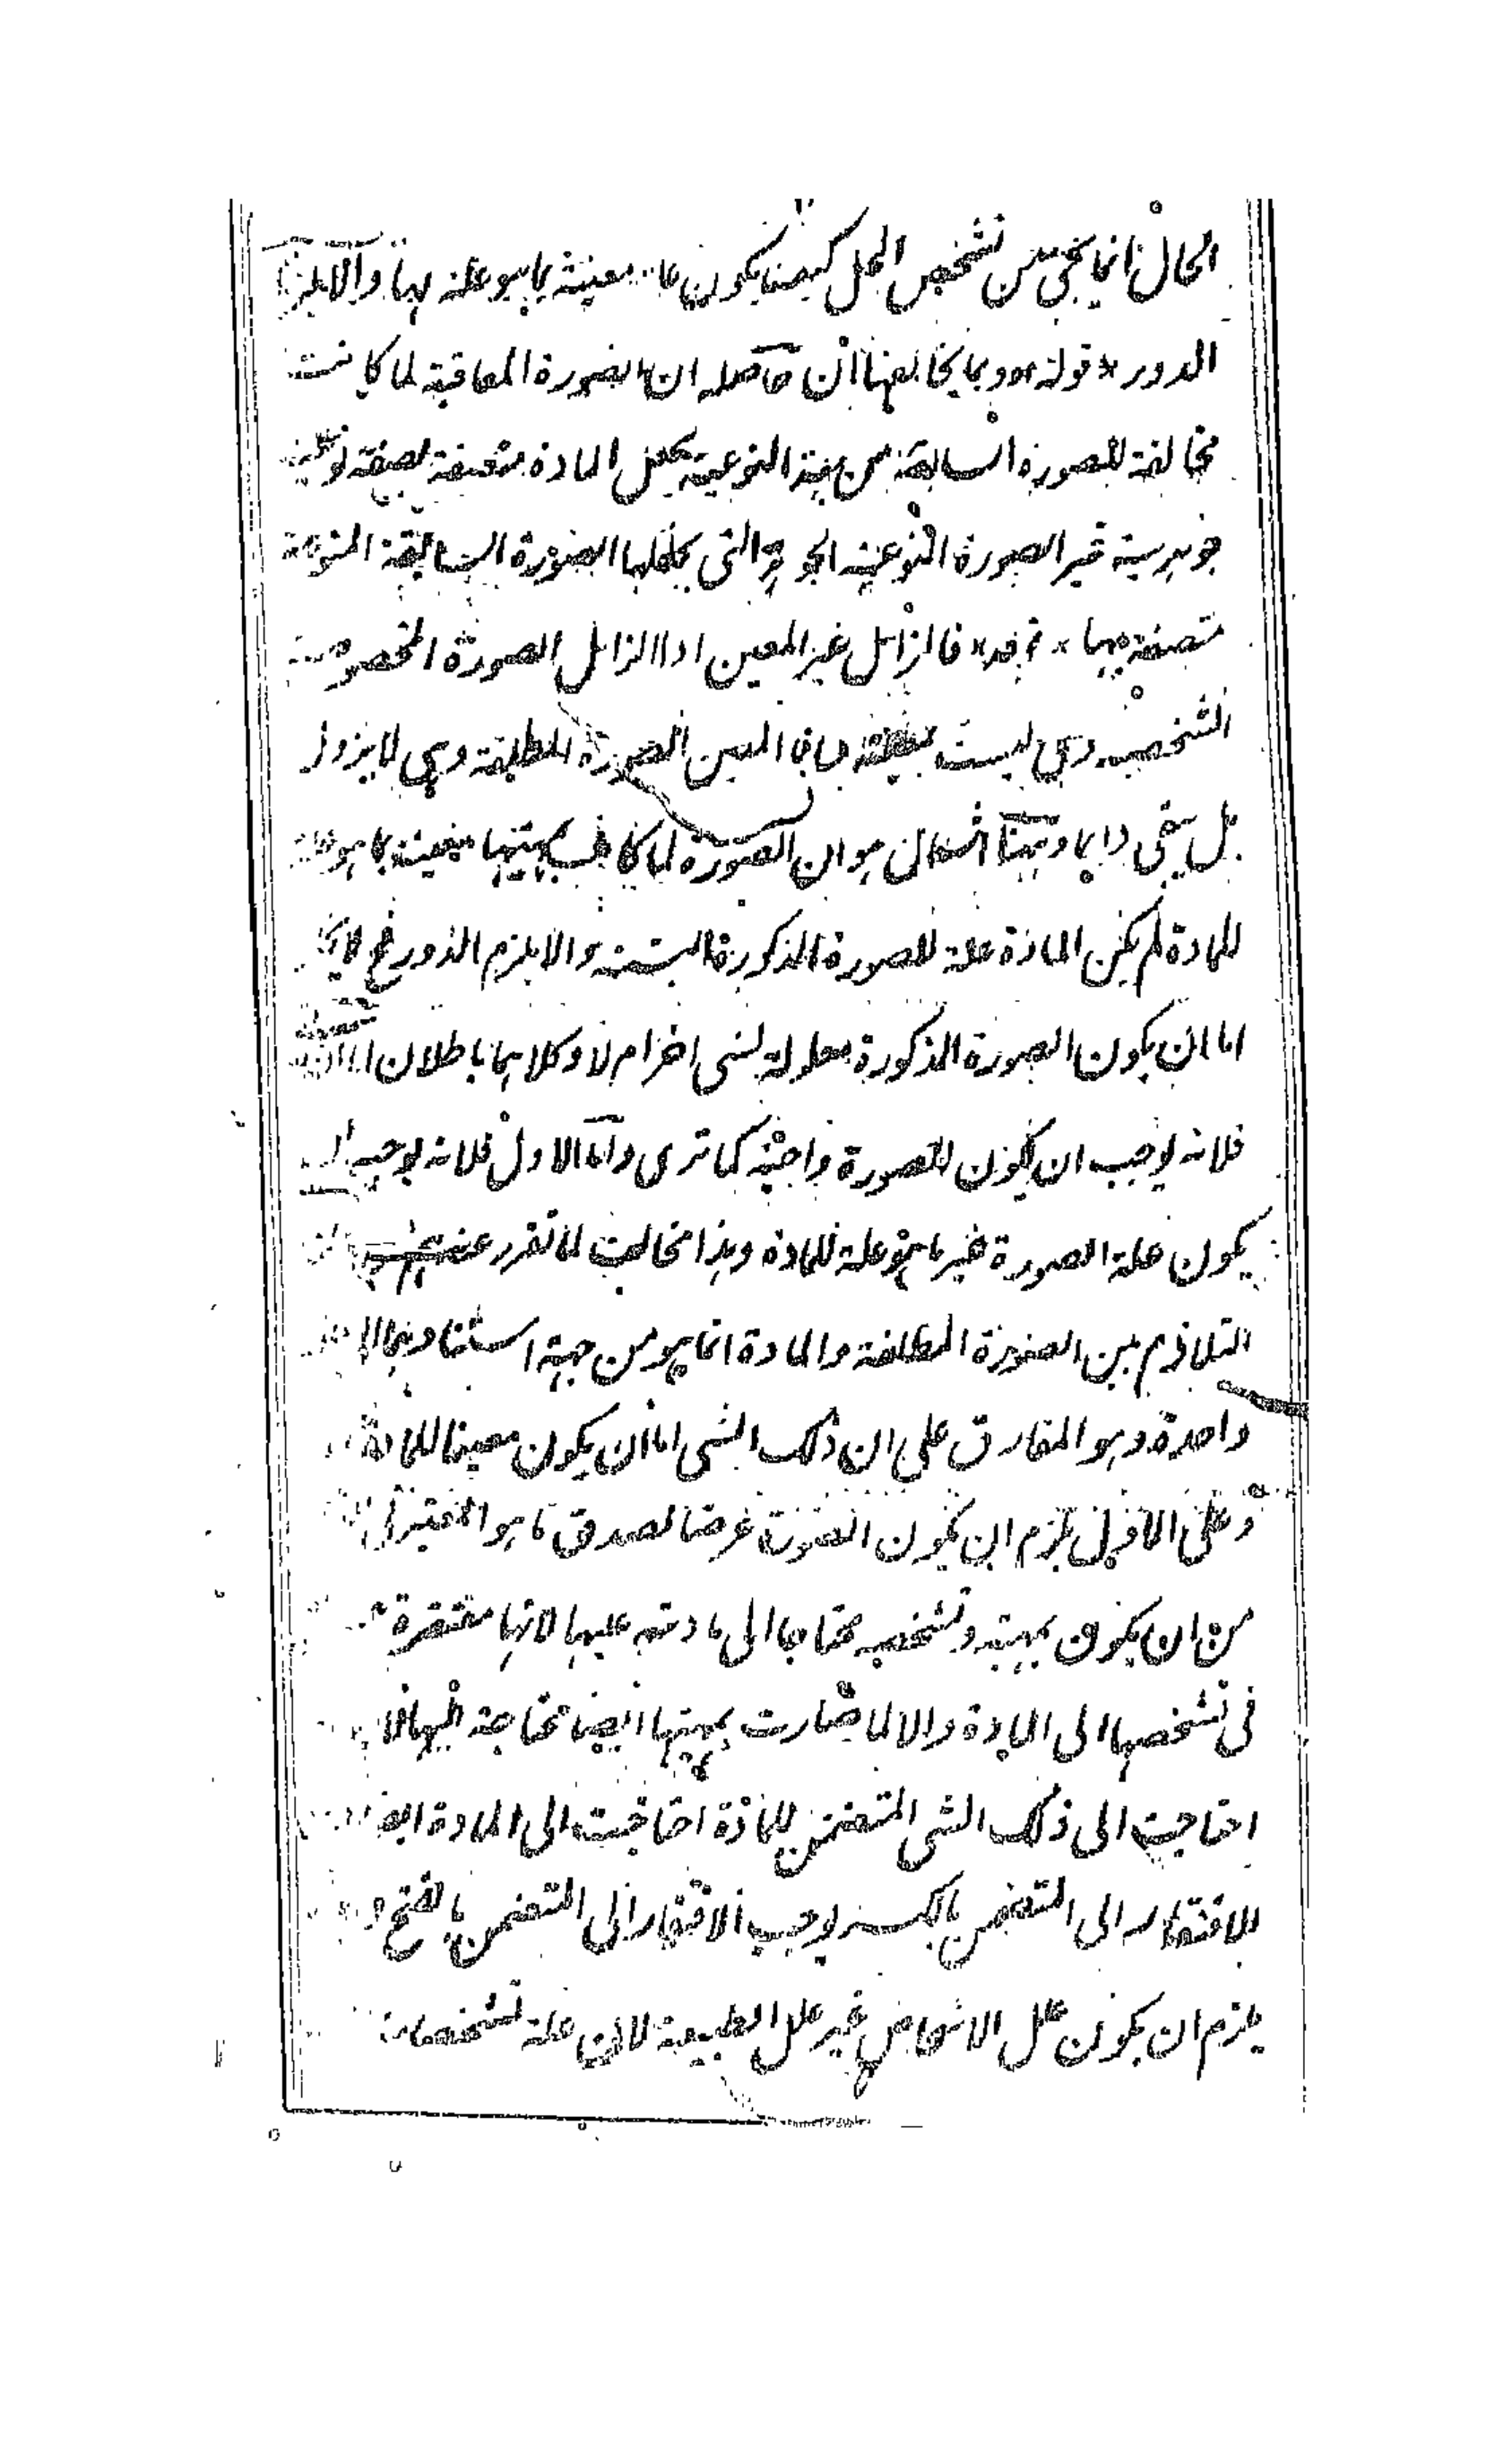 الحال انما يجئ من تشخص المحل كيف يكون معينة بما هو علة لها والا يلزم
الدور قوله وبما يخالفها ان حاصله ان الصورة المعاقبة لما كانت
مخالفة للصورة السابقة من جهة النوعية يجعل المادة متصفة بصفة نوعية
جوهرية غير الصورة النوعية الجوهرية التى يجعلها الصورة السابقة المنوعة
متصفة بها فالزائل غير المعين اذ الزائل الصورة المخصوصة
الشخصية وهى ليست بمعينة وانما المعين الصورة المطلقة وهى لا يزول
بل يبقى دايما وههنا اشكال هو ان الصورة لما كانت بمهيتها معينة بما هو علة
للمادة لم يكن المادة علة للصورة المذكورة البتة والا يلزم الدور فح لا يخ
اما ان يكون الصورة المذكورة معلولة لشى اخر ام لا وكلاهما باطلان اما
فلانه يوجب ان يكون الصورة واجبة كما ترى واما الاول فلانه يوجب
يكون علة الصورة غير ما هو علة للمادة وهذا مخالف لما تقرر عندهم
التلازم بين الصورة المطلقة والمادة انما هو من جهة استنادهما الى
واحدة وهو المفارق على ان ذلك الشى اما ان يكون معينا للمادة
وعلى الاول يلزم ان يكون الصورة عرضا لصدق ما هو المعتبر فى
من ان يكون بمهيته وتشخصه محتاجا الى مادته عليها لانها مفتقرة
فى تشخصها الى المادة والا لما صارت بمهيتها ايضا محتاجة اليها
احتاجت الى ذلك الشى المتضمن للمادة احتاجت الى المادة ايضا
الافتقار الى المتضمن بالكسر يوجب الافتقار الى المتضمن بالفتح و
يلزم ان يكون علل الاشخاص غير علل الطبيعة لان علة تشخصات